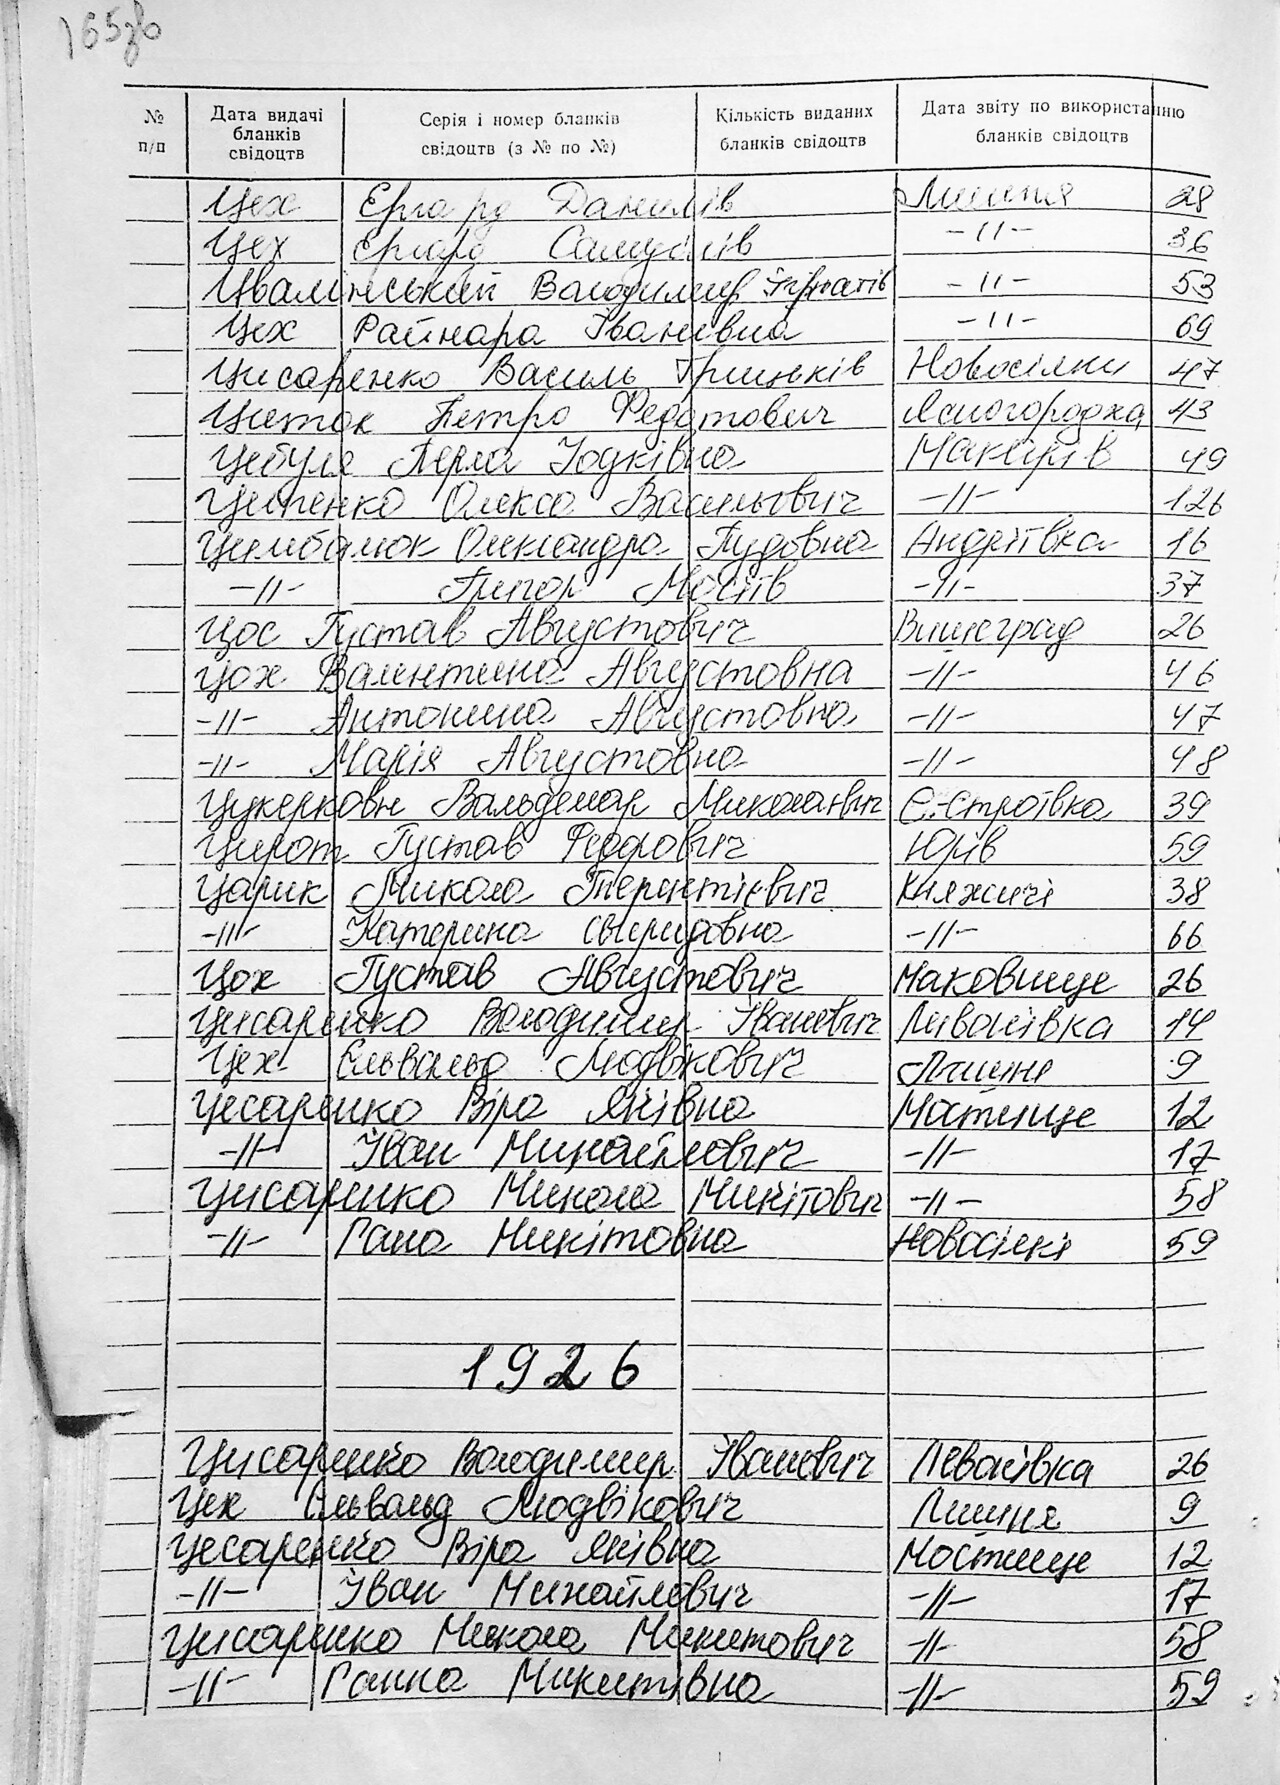 165зв
№ п/п Дата видачі бланків свідоцтв Серія і номер бланків свідоцтв (з № по №) Кількість виданих бланків свідоцтв Дата звіту по використанню бланків свідоцтв
Цех Ергард Данилів Лишня 28
Цех Ергард Самуілів -11- 36
Цвалінський Володимир Ігнатів -11- 53
Цех Райнара Іванівна -11- 69
Цисаренко Василь Грицьків Новосілки 47
Петро Федотович Ясногородка 43
Цибуля Перла Іодківна Макарів 49
Ципенко Олекса Васильович -11- 126
Цимбалюк Олександра Пудовна Андріївка 16
-11- Григор Мосіїв -11- 37
Цос Густав Августович Вишеград 26
Цох Валентина Августовна -11- 46
-11- Антонина Августовна -11- 47
-11- Марія Августовна -11- 48
Вальдемар Миколаєвич Є.-Строївка 39
Густав Федорович Юрів 59
Царик Микола Терентієвич Княжичі 38
-11- Катерина Свиридовна -11- 66
Цох Густав Августович Маковище 26
Цисаренко Володимир Іванович Левонівка 14
Цех Ельвальд Людвікович Лишня 9
Цесаренко Віра Яківна Мостище 12
-11- Іван Михайлович -11- 17
Цисаренко Микола Микітович -11- 58
-11- Гана Микітовна Новосілкі 59
1926
Цисаренко Володимир Іванович Левонівка 26
Цех Ельвальд Людвікович Лишня 9
Цесаренко Віра Яківна Мостище 12
-11- Іван Михайлович -11- 17
Цисаренко Микола Микитович -11- 58
-11- Ганна Микитівна -11- 59